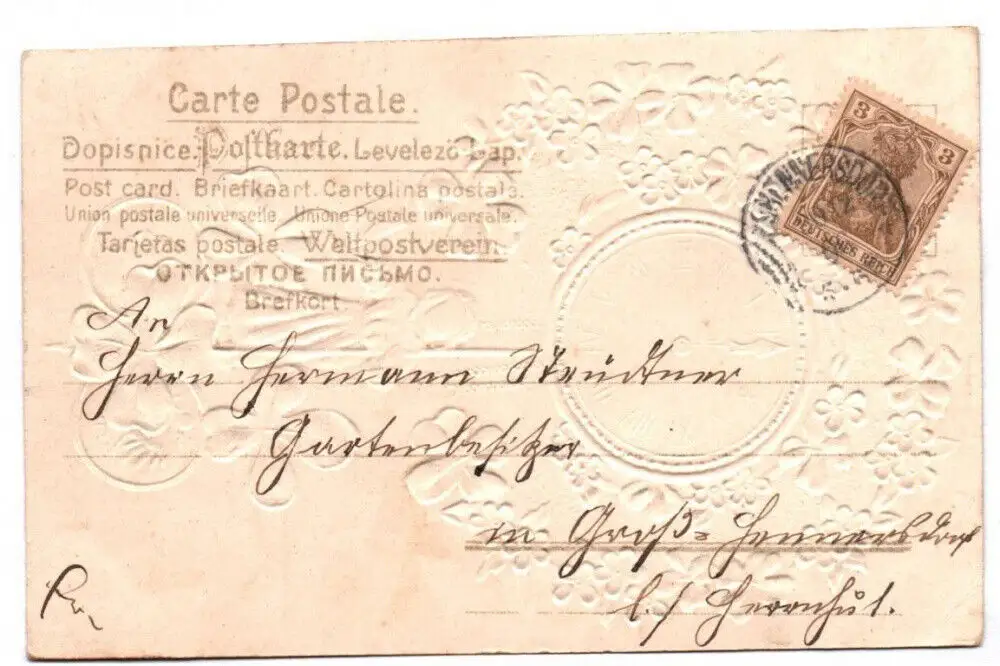 Carte Postale.
Dopisnice. Postkarte. Levelező-Lap.
Post card. Briefkaart. Cartolina postale.
Union postale universelle. Unione Postale universale.
Tarjetas postale. Weltpostverein.
ОТКРЫТОЕ ПИСЬМО.
Brefkort
3 3
DEUTSCHES REICH
HENNERSDORF
An
Herrn Hermann Steudtner
Gartenbesitzer
in Groß-Hennersdorf
b./ Herrnhut.